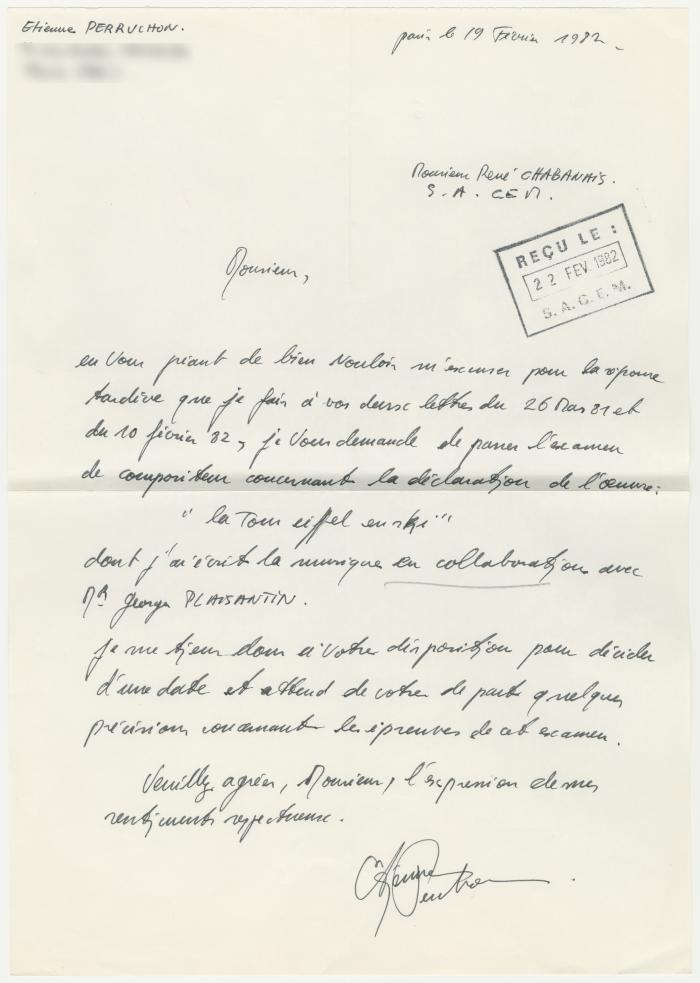 Etienne PERRUCHON.
paris le 19 Février 1982
Monsieur René CHABANAIS.
S. A. CEM.
REÇU LE :
22 FEV. 1982
S. A. C. E. M.
Monsieur,
en vous priant de bien vouloir m'excuser pour la réponse
tardive que je fais à vos deux lettres du 26 Mars 81 et
du 10 février 82, je vous demande de passer l'examen
de compositeur concernant la déclaration de l'œuvre:
" la Tour eiffel en ski"
dont j'ai écrit la musique en collaboration avec
Mr Georges PLAISANTIN.
je me tiens donc à votre disposition pour décider
d'une date et attend de votre de part quelques
précisions concernant les épreuves de cet examen.
Veuillez agréer, Monsieur, l'expression de mes
sentiments respectueux.
Etienne Perruchon